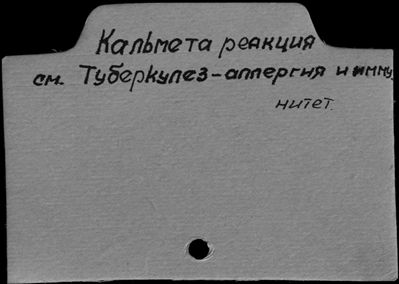 Кальмета реакция
см. Туберкулез-аллергия и имму
нитет.